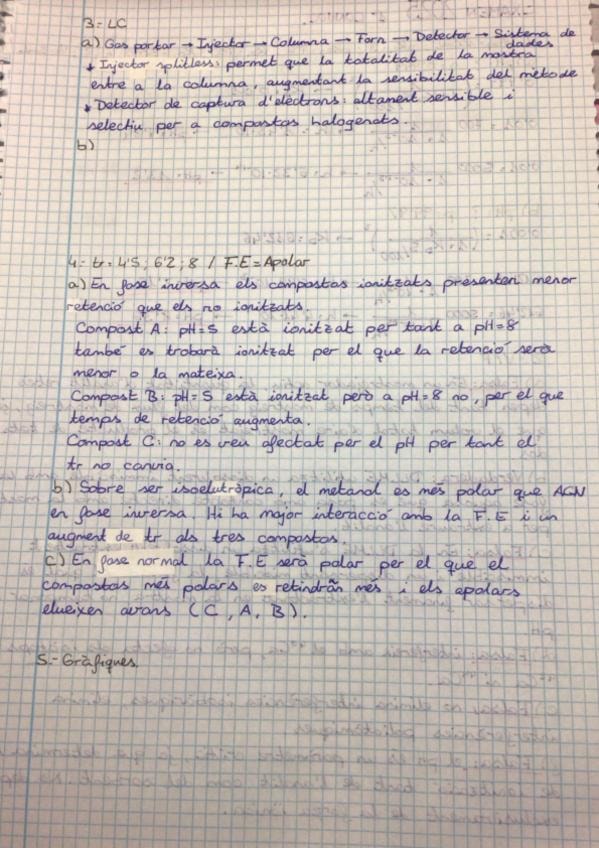 3.- LC
a) Gas portar → Injector → Columna → Forn → Detector → Sistema de
dades
↓ Injector splitless: permet que la totalitat de la mostra
entre a la columna, augmentant la sensibilitat del mètode
↓ Detector de captura d'electrons: altament sensible i
selectiu per a compostos halogenats.
b)
4.- tr = 4'5 ; 6'2 ; 8 / F.E = Apolar
a) En fase inversa els compostos ionitzats presenten menor
retenció que els no ionitzats.
Compost A: pH=5 està ionitzat per tant a pH=8
també es trobarà ionitzat per el que la retenció serà
menor o la mateixa.
Compost B: pH=5 està ionitzat però a pH=8 no, per el que
temps de retenció augmenta.
Compost C: no es veu afectat per el pH per tant el
tr no canvia.
b) Sobre ser isoelutròpica, el metanol es més polar que AGN
en fase inversa. Hi ha major interacció amb la F.E i un
augment de tr als tres compostos.
c) En fase normal la F.E serà polar per el que el
compostos més polars es retindran més i els apolars
elueixen avans (C, A, B).
5.- Gràfiques